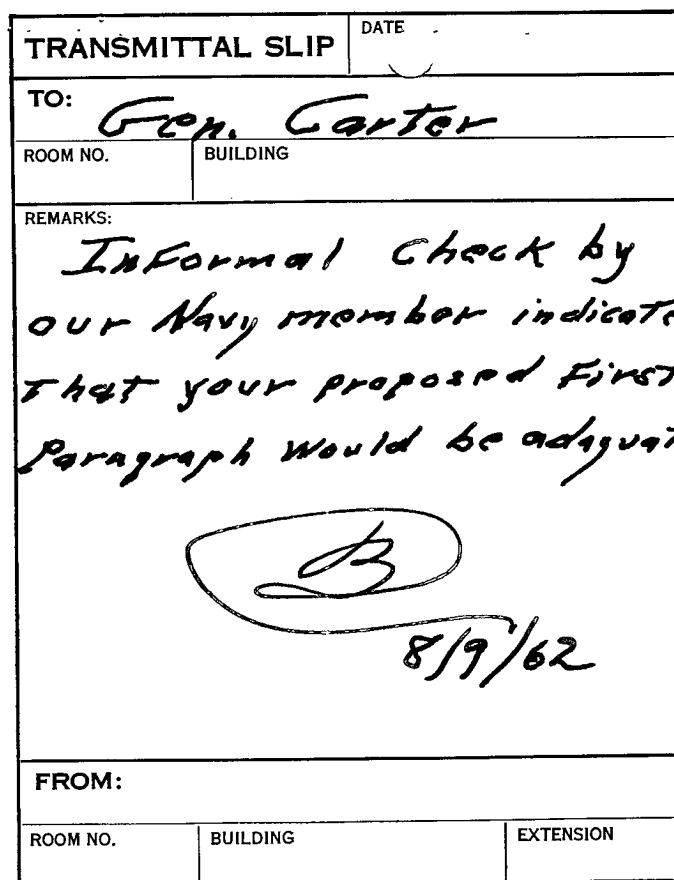 TRANSMITTAL SLIP
DATE
TO: Gen. Carter
ROOM NO.
BUILDING
REMARKS:
Informal Check by
our Navy member indicate
that your proposed First
Paragraph would be adaquat
B
8/9/62
FROM:
ROOM NO.
BUILDING
EXTENSION